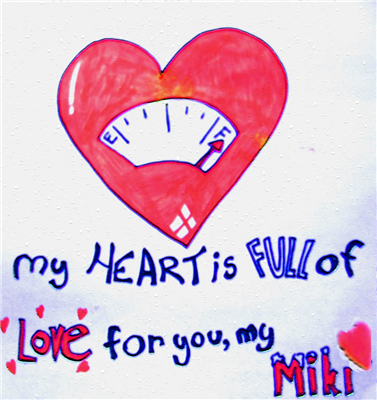 E F
my HEART is FULL of
Love for you, my
Miki